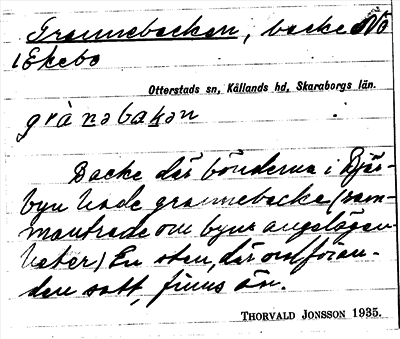 Grannebacken, backe NV
i Ekebo
Otterstads sn, Kållands hd, Skaraborgs län.
grànəbakən
Backe där bönderna i Djär-
byn hade grannebacke (sam-
manträde om byns angelägen-
heter) En sten, där ordföran-
den satt, finns än.
THORVALD JONSSON 1935.